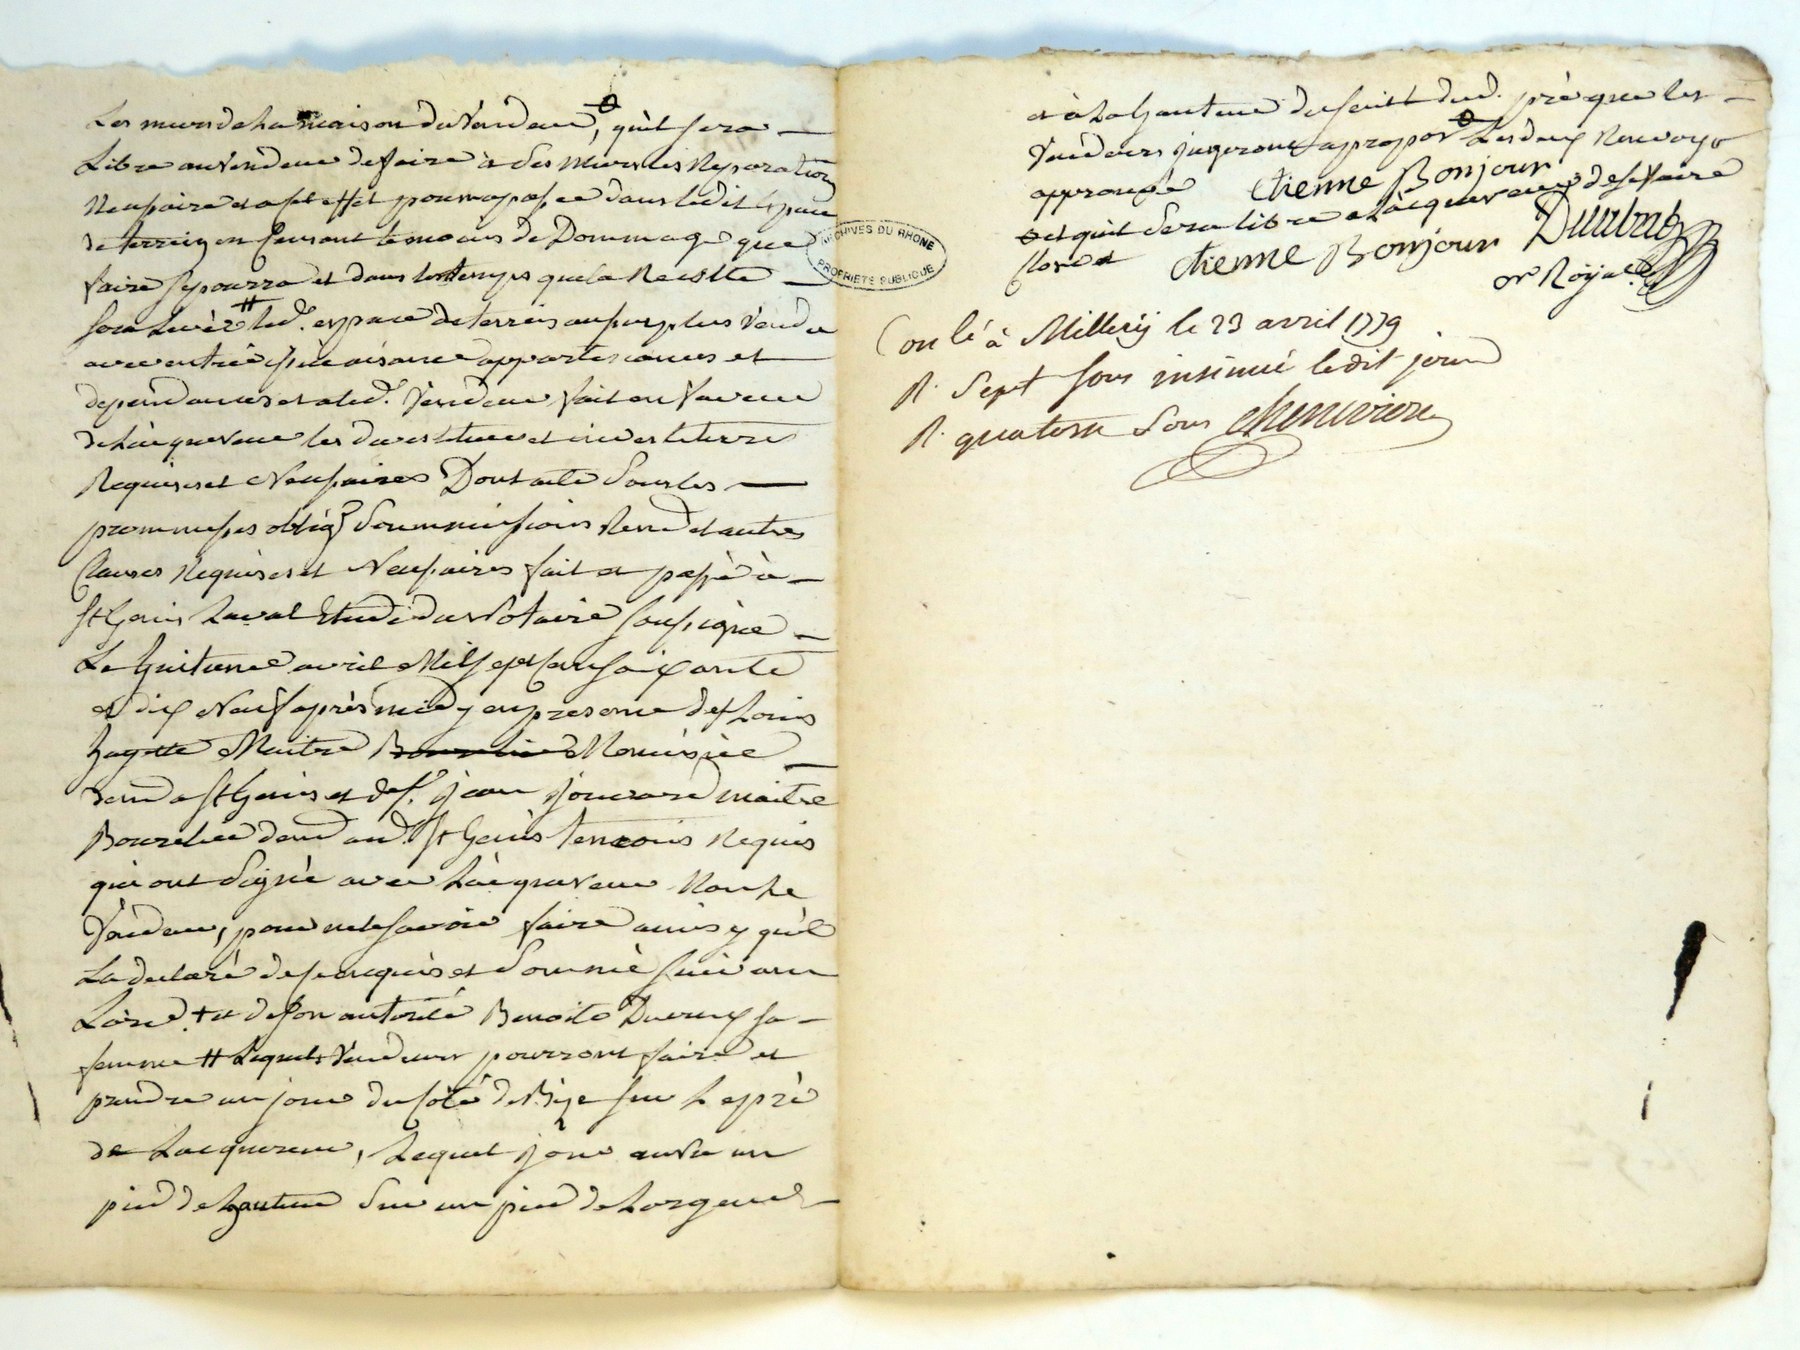 Les murs de la maison du Vendeur, qu'il sera
Libre au Vendeur de faire à ses murs les Reparations
Neufsaire et a cet effet pourra passer dans ledit espace
de terrein en Causant le moins de Dommage que
faire se pourra et dans les temps que la Recolte
sera Levée # led. espace de terrein au surplus Vendu
avec entrée issüe aisance appartenances et
dependances et a led. Vendeur fait en faveur
de Lâcquereur les devestiture et investiture
Requises et Neufsaires Dont acte Sous les
prommesses oblig. Soummissions Renon. et autres
Clauses Requises et Neufsaires fait et passé à
St Genis Laval Etude du Notaire soussigné
Le huitieme avril Mil sept Cent soixante
et dix Neuf après midy en presence de s. Louis
hayette Maitre Menuisier
dem. a St Genis et de s. jean maitre
Bourelier dem. aud. St Genis temoins Requis
qui ont Signé avec Lâcquereur Non Le
Vendeur, pour ne Scavoir faire ainsy qu'il
La declaré de ce enquis et Sommé suivant
Lord. + et de son autorité Benoite sa
femme # Lequels Vendeurs pourront faire et
prendre un jour du Coté de Bize sur Le pré
de Lacquereur, Lequel jour aura un
pied de hauteur Sur un pied de Largeur
et à La hauteur du seuil dud. pré que les
Vendeurs jugeront apropos Les deux Renvoys
approuvés Etienne Bonjour
et quil Sera libre a Lâcquereur de se faire
Clore et Etienne Bonjour
Re Royal
Con lé à Millery le 23 avril 1779
R. Sept sous insinué ledit jour
R. quatorze Sous cheneviere
ARCHIVES DU RHONE
PROPRIETE PUBLIQUE